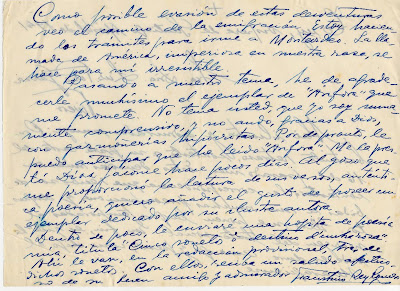 Como posible evasión de estas desventuras
veo el camino de la emigración. Estoy hacien-
do los trámites para irme a Montevideo. La lla-
mada de América, imperiosa en nuestra raza, se
hace para mí irresistible.
Pasando a nuestro tema, he de agrade-
cerle muchísimo el ejemplar de "Anfora" que
me promete. No tema usted, que yo soy suma-
mente comprensivo, y no ando, gracias a Dios,
con gazmoñerías hipócritas. Por de pronto, le
puedo anticipar que he leído "Anfora". Me la pres-
tó Díaz Jácome hace pocos días. Al gozo que
me proporcionó la lectura de sus versos, auténti-
ca poesía, quiero añadir el gusto de poseer un
ejemplar dedicado por su ilustre autora.
Dentro de poco, le enviaré una hojita de poesía
mía; titula Cinco sonetos
Ahí le van, en la redacción provisional, tres de
dichos sonetos. Con ellos, reciba un saludo afectuo-
so de su buen amigo y admirador